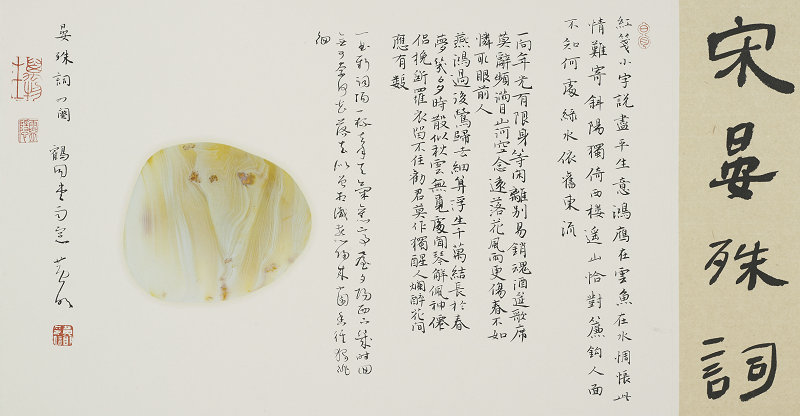 宋晏殊詞
紅箋小字說盡平生意鴻鴈在雲魚在水惆悵此
情難寄斜陽獨倚西樓遙山恰對簾鉤人面
不知何處綠水依舊東流
一向年光有限身等闲離別易銷魂酒筵歌席
莫辭頻滿目山河空念遠落花風雨更傷春不如
憐取眼前人
燕鴻過後鶯歸去細算浮生千萬緒長於春
夢幾多時散似秋雲無覓處聞琴解佩神仙
侶挽斷羅衣留不住勸君莫作獨醒人爛醉花間
應有數
一曲新詞酒一杯去年天氣舊亭臺夕陽西下幾時回
無可奈何花落去似曾相識燕歸來小園香徑獨徘
徊
晏殊詞四闋 鶴